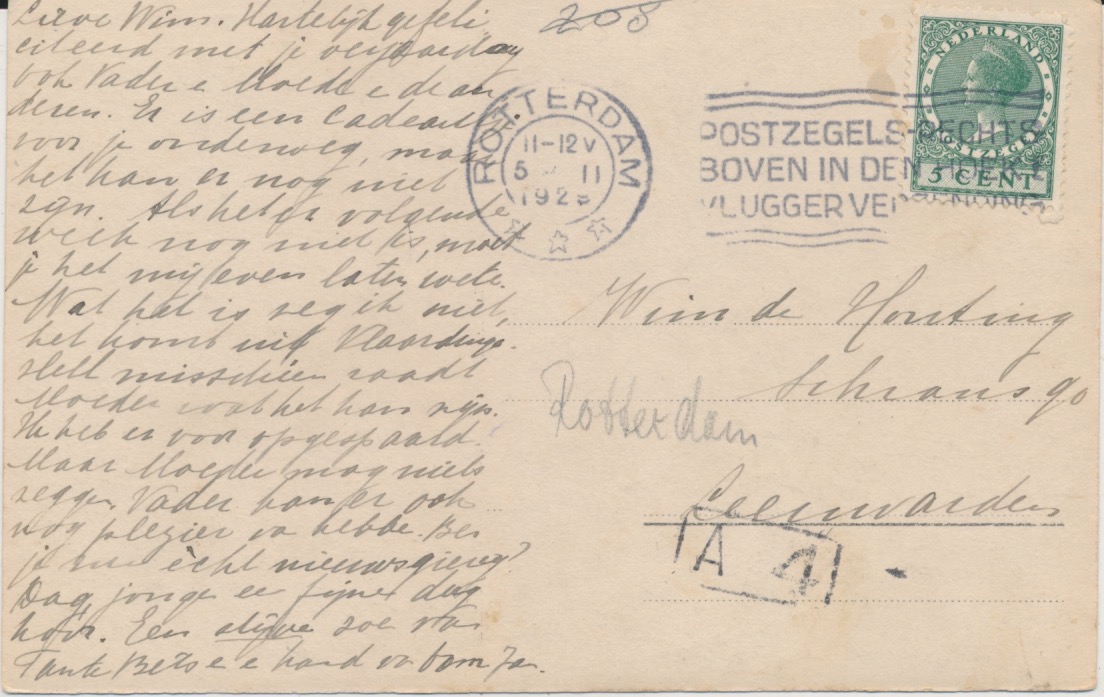 Lieve Wim. Hartelijk gefeli
citeerd met je verjaardag
ook Vader e Moeder e de an
deren. Er is een cadeau
voor je onderweg, maar
het kan er nog niet
zijn. Als het er volgende
week nog niet is, moet
je het mij even laten wete.
Wat het is zeg ik niet,
het komt uit Vlaardinge.
Heel misschien raadt
Moeder wat het kan zijn.
Ik heb er voor opgespaard.
Maar Moeder mag niets
zeggen. Vader kan er ook
nog plezier va hebbe. Ben
je nu ècht nieuwsgierig?
Dag, jonge ee fijne dag
hoor. Een stijve zoe van
Tante Bets e e hand va oom Ja.
208
ROTTERDAM
11-12 V
5 11
192
POSTZEGELS RECHTS
BOVEN IN DEN HOEK =
VLUGGER VER
NEDERLAND
POSTZEGEL
5 CENT
Wim de Honting
Schrans 90
Rotterdam
Leeuwarden
A 4